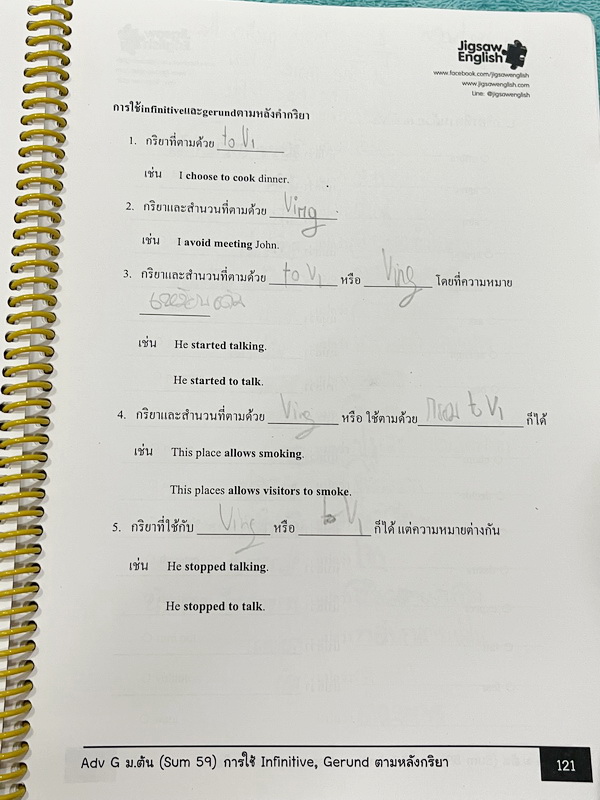 Jigsaw
English
www.facebook.com/jigsawenglish
www.jigsawenglish.com
Line: @jigsawenglish
การใช้infinitiveและgerundตามหลังคำกริยา
1. กริยาที่ตามด้วย to V1
เช่น I choose to cook dinner.
2. กริยาและสำนวนที่ตามด้วย Ving
เช่น I avoid meeting John.
3. กริยาและสำนวนที่ตามด้วย to V1 หรือ Ving โดยที่ความหมาย
เช่น He started talking.
He started to talk.
4. กริยาและสำนวนที่ตามด้วย Ving หรือ ใช้ตามด้วย กรรม to V1 ก็ได้
เช่น This place allows smoking.
This places allows visitors to smoke.
5. กริยาที่ใช้กับ Ving หรือ to V1 ก็ได้ แต่ความหมายต่างกัน
เช่น He stopped talking.
He stopped to talk.
Adv G ม.ต้น (Sum 59) การใช้ Infinitive, Gerund ตามหลังกริยา 121